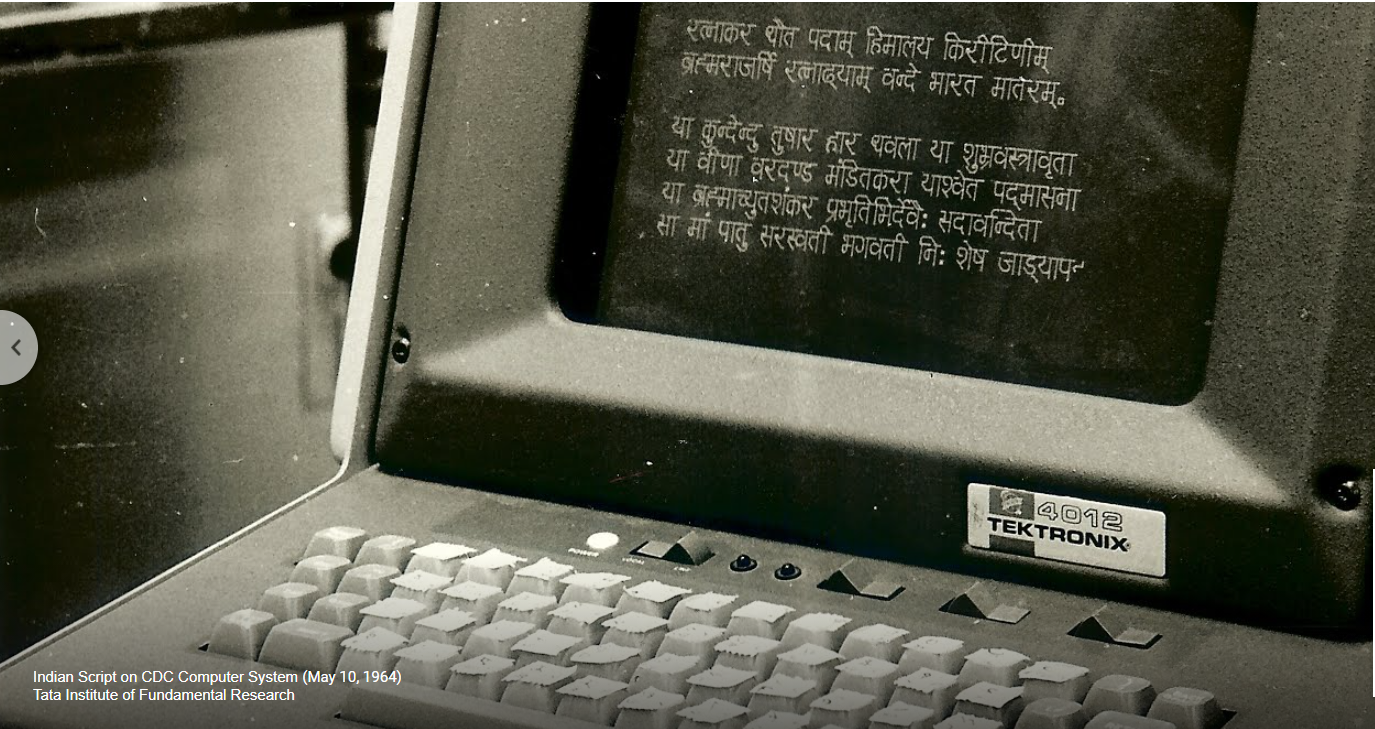 रत्नाकर धौत पदाम् हिमालय किरीटिणीम्
ब्रह्मराजर्षि रत्नाढ्याम् वन्दे भारत मातरम्.
या कुन्देन्दु तुषार हार धवला या शुभ्रवस्त्रावृता
या वीणा वरदण्ड मंडितकरा याश्वेत पद्मासना
या ब्रह्माच्युतशंकर प्रभृतिभिर्देवैः सदावन्दिता
सा मां पातु सरस्वती भगवती निः शेष जाड्याप
4012
TEKTRONIX
POWER
LOCAL
LINE
Indian Script on CDC Computer System (May 10, 1964)
Tata Institute of Fundamental Research